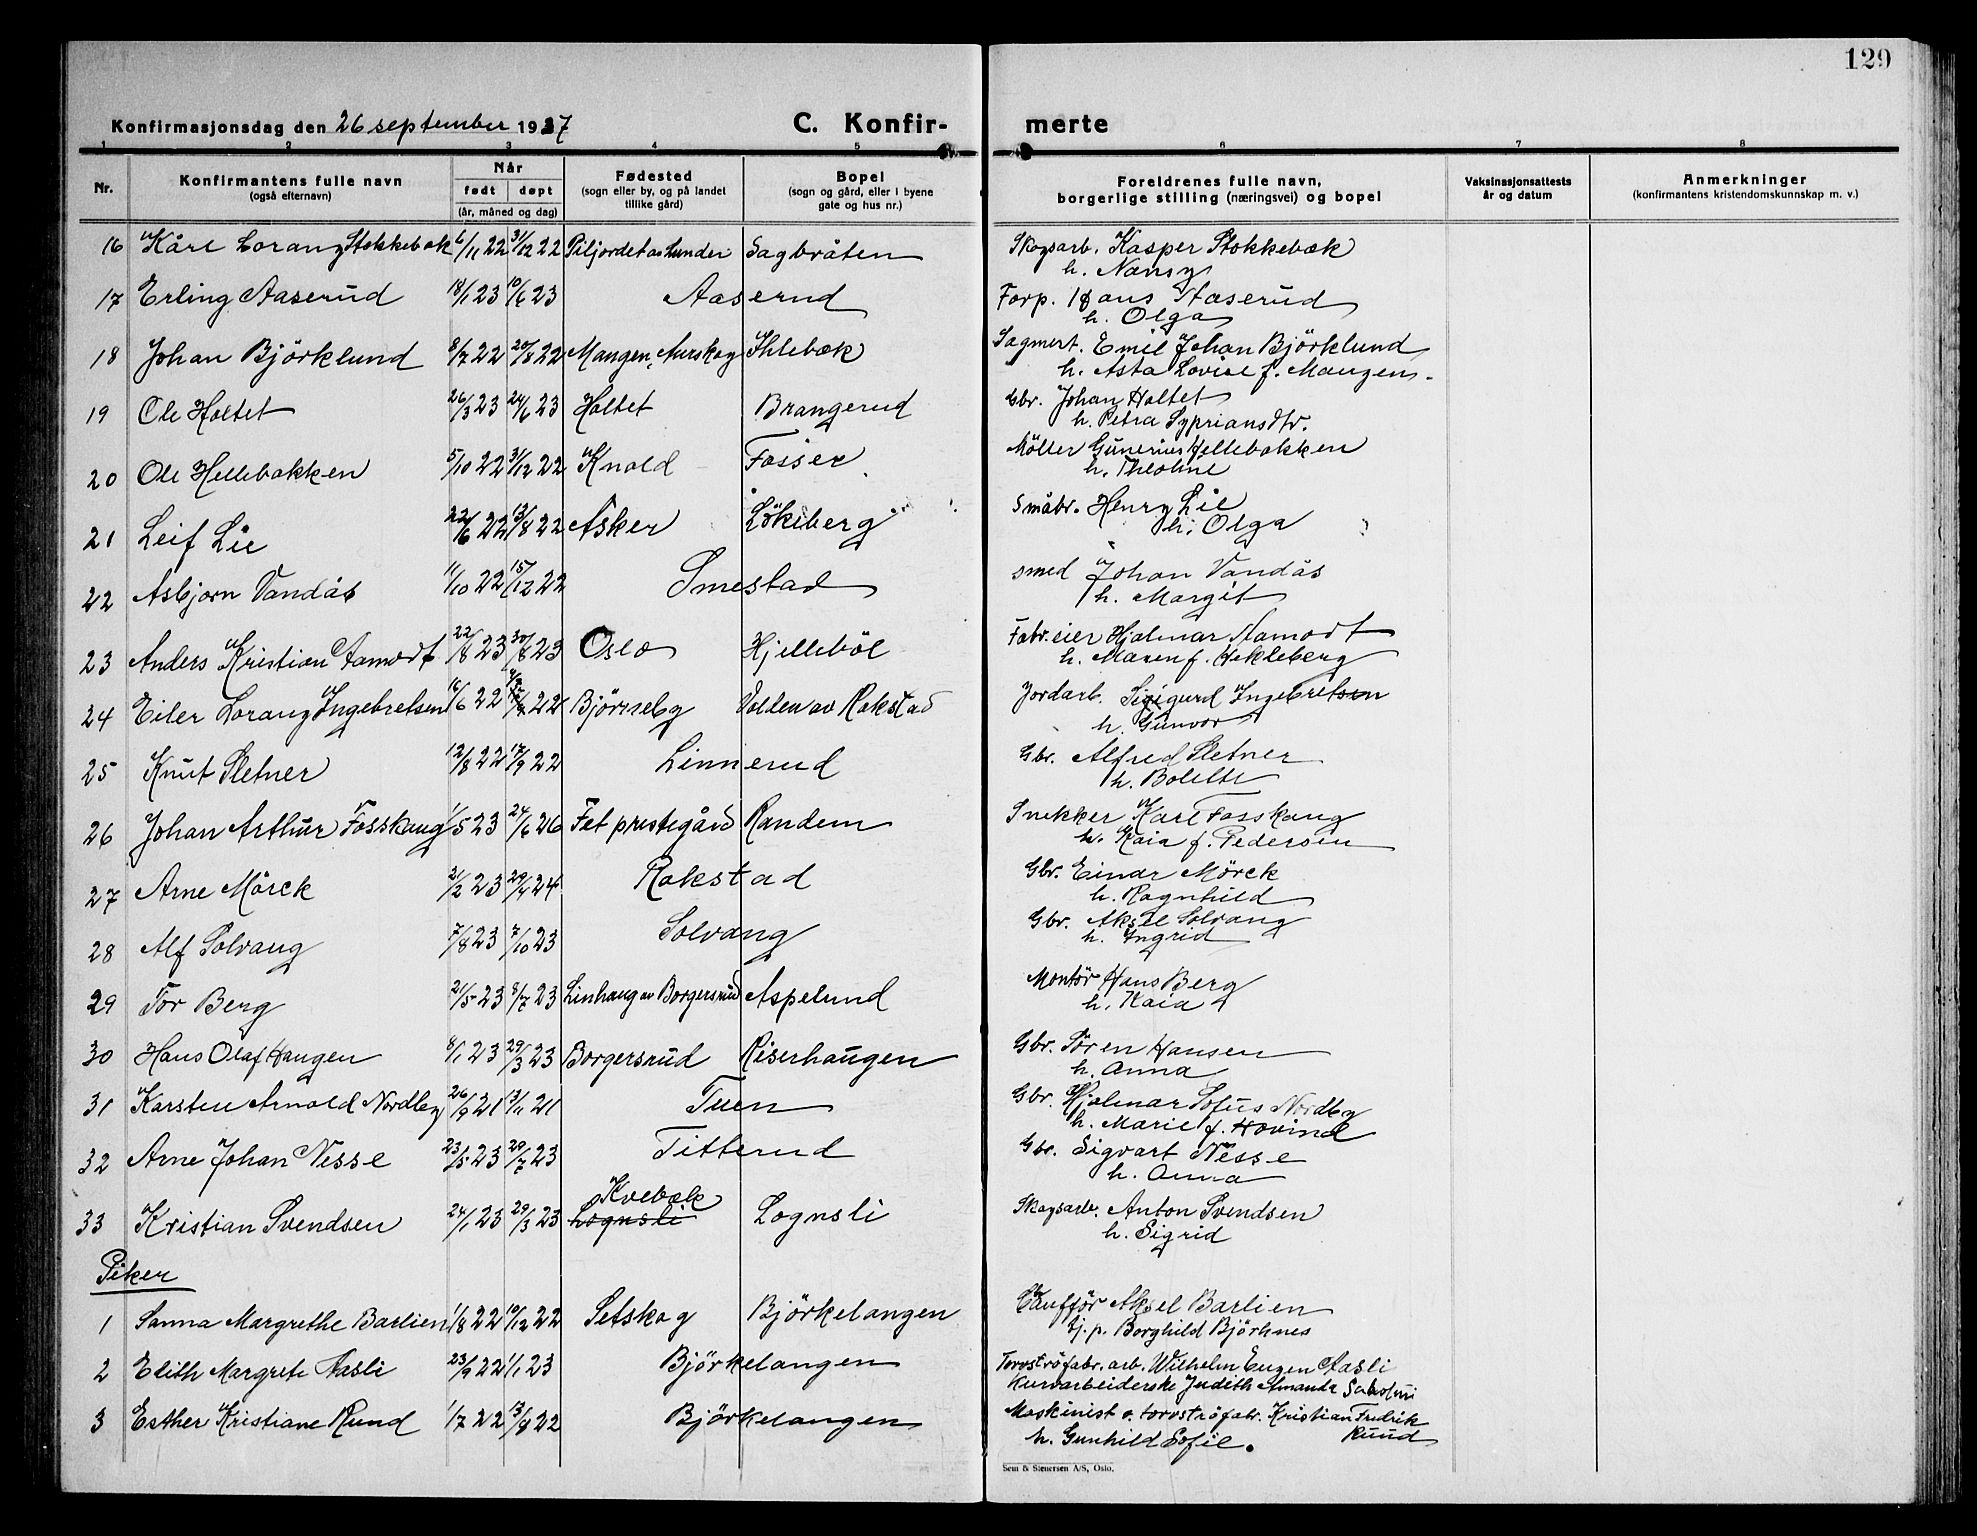 129
Konfirmasjonsdag den 26 september 1937 C. Konfir- merte
1 2 3 4 5 6 7 8
Nr. Konfirmantens fulle navn (også efternavn) Når født døpt (år, måned og dag) Fødested (sogn eller by, og på landet tillike gård) Bopel (sogn og gård, eller i byene gate og hus nr.) Foreldrenes fulle navn, borgerlige stilling (næringsvei) og bopel Vaksinasjonsattests år og datum Anmerkninger (konfirmantens kristendomskunnskap m. v.)
16 Kåre Lorang Stokkebæk 6/11 22 31/12 22 Piljordet av Lunder Sagbråten Skogsarb. Kasper Stokkebæk
h. Nansy
17 Erling Aaserud 18/1 23 10/6 23 Aaserud Forp. Hans Aaserud
h. Olga
18 Johan Björklund 8/7 22 20/8 22 Mangen, Aurskog Ihlebæk Sagmest. Emil Johan Björklund
h. Asta Lovise f. Mangen.
19 Ole Holtet 26/3 23 24/6 23 Holtet Brangerud Gbr. Johan Holtet
h. Petra Sypriansdtr.
20 Ole Hellebakken 5/10 22 31/12 22 Knold Fosser Möller Gunerius Hellebakken
h. Theoline
21 Leif Lie 22/6 22 13/8 22 Asker Lökeberg Småbr. Henry Lie
h. Olga
22 Asbjorn Vandås 11/10 22 15/12 22 Smestad smed Johan Vandås
h. Margit
23 Anders Kristian Aamodt 22/8 23 30/8 23 Oslo Hjelleböl Fabr.eier Hjalmar Aamodt
h. Maren f. Hekleberg
24 Eiler Lorang Ingebretsen 16/6 22 22 Björneby Volden av Rakstad Jordarb. Sigurd Ingebretsen
h. Gunvor
25 Knut Sletner 12/8 22 17/9 22 Linnerud Gbr. Alfred Sletner
h. Bolette
26 Johan Arthur Fosskaug 1/5 23 24/6 26 Fet prestegård Randem Snekker Karl Fosskaug
h. Kaia f. Pedersen
27 Arne Mörck 21/2 23 29/4 24 Rakstad Gbr. Einar Mörck
h. Ragnhild
28 Alf Solvang 7/8 23 7/10 23 Solvang Gbr. Aksel Solvang
h. Ingrid
29 Tor Berg 21/5 23 8/7 23 Linhaug av Borgersrud Aspelund Montör Hans Berg
h. Kaia
30 Hans Olaf Haugen 8/1 23 29/3 23 Borgersrud Riserhaugen Gbr. Sören Hansen
h. Anna
31 Karsten Arnold Nordby 26/9 21 13/11 21 Tuen Gbr. Hjalmar Sofus Nordby
h. Marie f. Hovind
32 Arne Johan Nesse 23/5 23 29/7 23 Titterud Gbr. Sigvart Nesse
h. Anna
33 Kristian Svendsen 24/1 23 29/3 23 Kvebæk Lognsli Lognsli Skogsarb. Anton Svendsen
h. Sigrid
Piker
1 Sanna Margrethe Barlien 1/8 22 10/12 22 Setskog Björkelangen Sjåfför Aksel Barlien
Ej. p. Borghild Björknes
2 Edith Margrete Aasli 23/9 22 1/1 23 Björkelangen Torvströfabr. arb. Wilhelm Eugen Aasli
Kurvarbeiderske Judith Amanda
3 Esther Kristiane Ruud 1/7 22 13/8 22 Björkelangen Maskinist v. torvströfabr. Kristian Fredrik Ruud
h. Gunhild Sofie.
Sem & Stenersen A/S, Oslo.